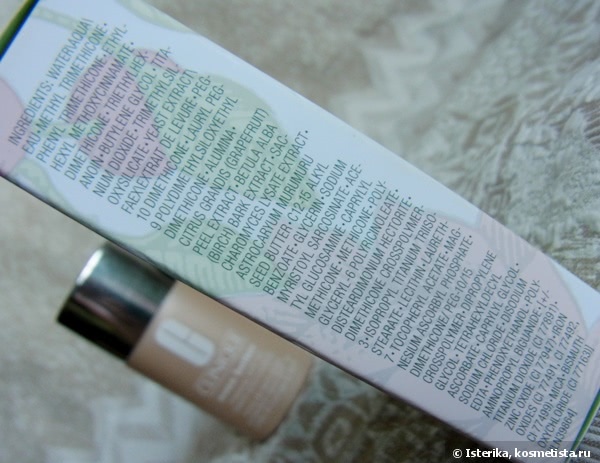 INGREDIENTS: WATER\AQUA\
EAU • METHYL TRIMETHICONE •
PHENYL TRIMETHICONE • ETHYL-
HEXYL METHOXYCINNAMATE •
DIMETHICONE • TRIETHYLHEX-
ANOIN • BUTYLENE GLYCOL • TITA-
NIUM DIOXIDE • TRIMETHYLSIL-
OXYSILICATE • YEAST EXTRACT\
FAEX\EXTRAIT DE LEVURE • PEG-
10 DIMETHICONE • LAURYL PEG-
9 POLYDIMETHYLSILOXYETHYL
DIMETHICONE • ALUMINA •
CITRUS GRANDIS (GRAPEFRUIT)
PEEL EXTRACT • BETULA ALBA
(BIRCH) BARK EXTRACT • SAC-
CHAROMYCES LYSATE EXTRACT •
ASTROCARYUM MURUMURU
SEED BUTTER • C12-15 ALKYL
BENZOATE • GLYCERIN • SODIUM
MYRISTOYL SARCOSINATE • ACE-
TYL GLUCOSAMINE • CAPRYLYL
METHICONE • METHICONE • POLY-
GLYCERYL-6 POLYRICINOLEATE •
DISTEARDIMONIUM HECTORITE •
DIMETHICONE CROSSPOLYMER-
3 • ISOPROPYL TITANIUM TRIISO-
STEARATE • LECITHIN • LAURETH-
7 • TOCOPHERYL ACETATE • MAG-
NESIUM ASCORBYL PHOSPHATE •
DIMETHICONE/PEG-10/15
CROSSPOLYMER • DIPROPYLENE
GLYCOL • TETRAHEXYLDECYL
ASCORBATE • CAPRYLYL GLYCOL •
SODIUM CHLORIDE • DISODIUM
EDTA • PHENOXYETHANOL • POLY-
AMINOPROPYL BIGUANIDE • [+/-
TITANIUM DIOXIDE (CI 77891) •
ZINC OXIDE (CI 77947) • IRON
OXIDES (CI 77491, CI 77492,
CI 77499) • MICA • BISMUTH
OXYCHLORIDE (CI 77163)]
CLINIQUE
© Isterika, kosmetista.ru